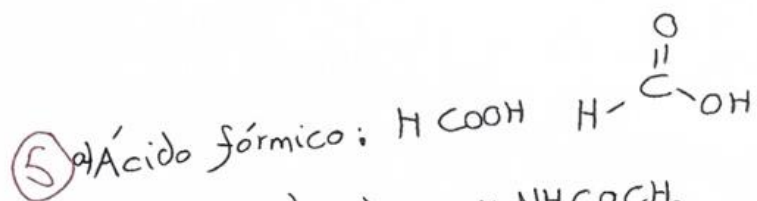 5 a) Ácido fórmico: HCOOH H-C(=O)-OH
NHCOCH